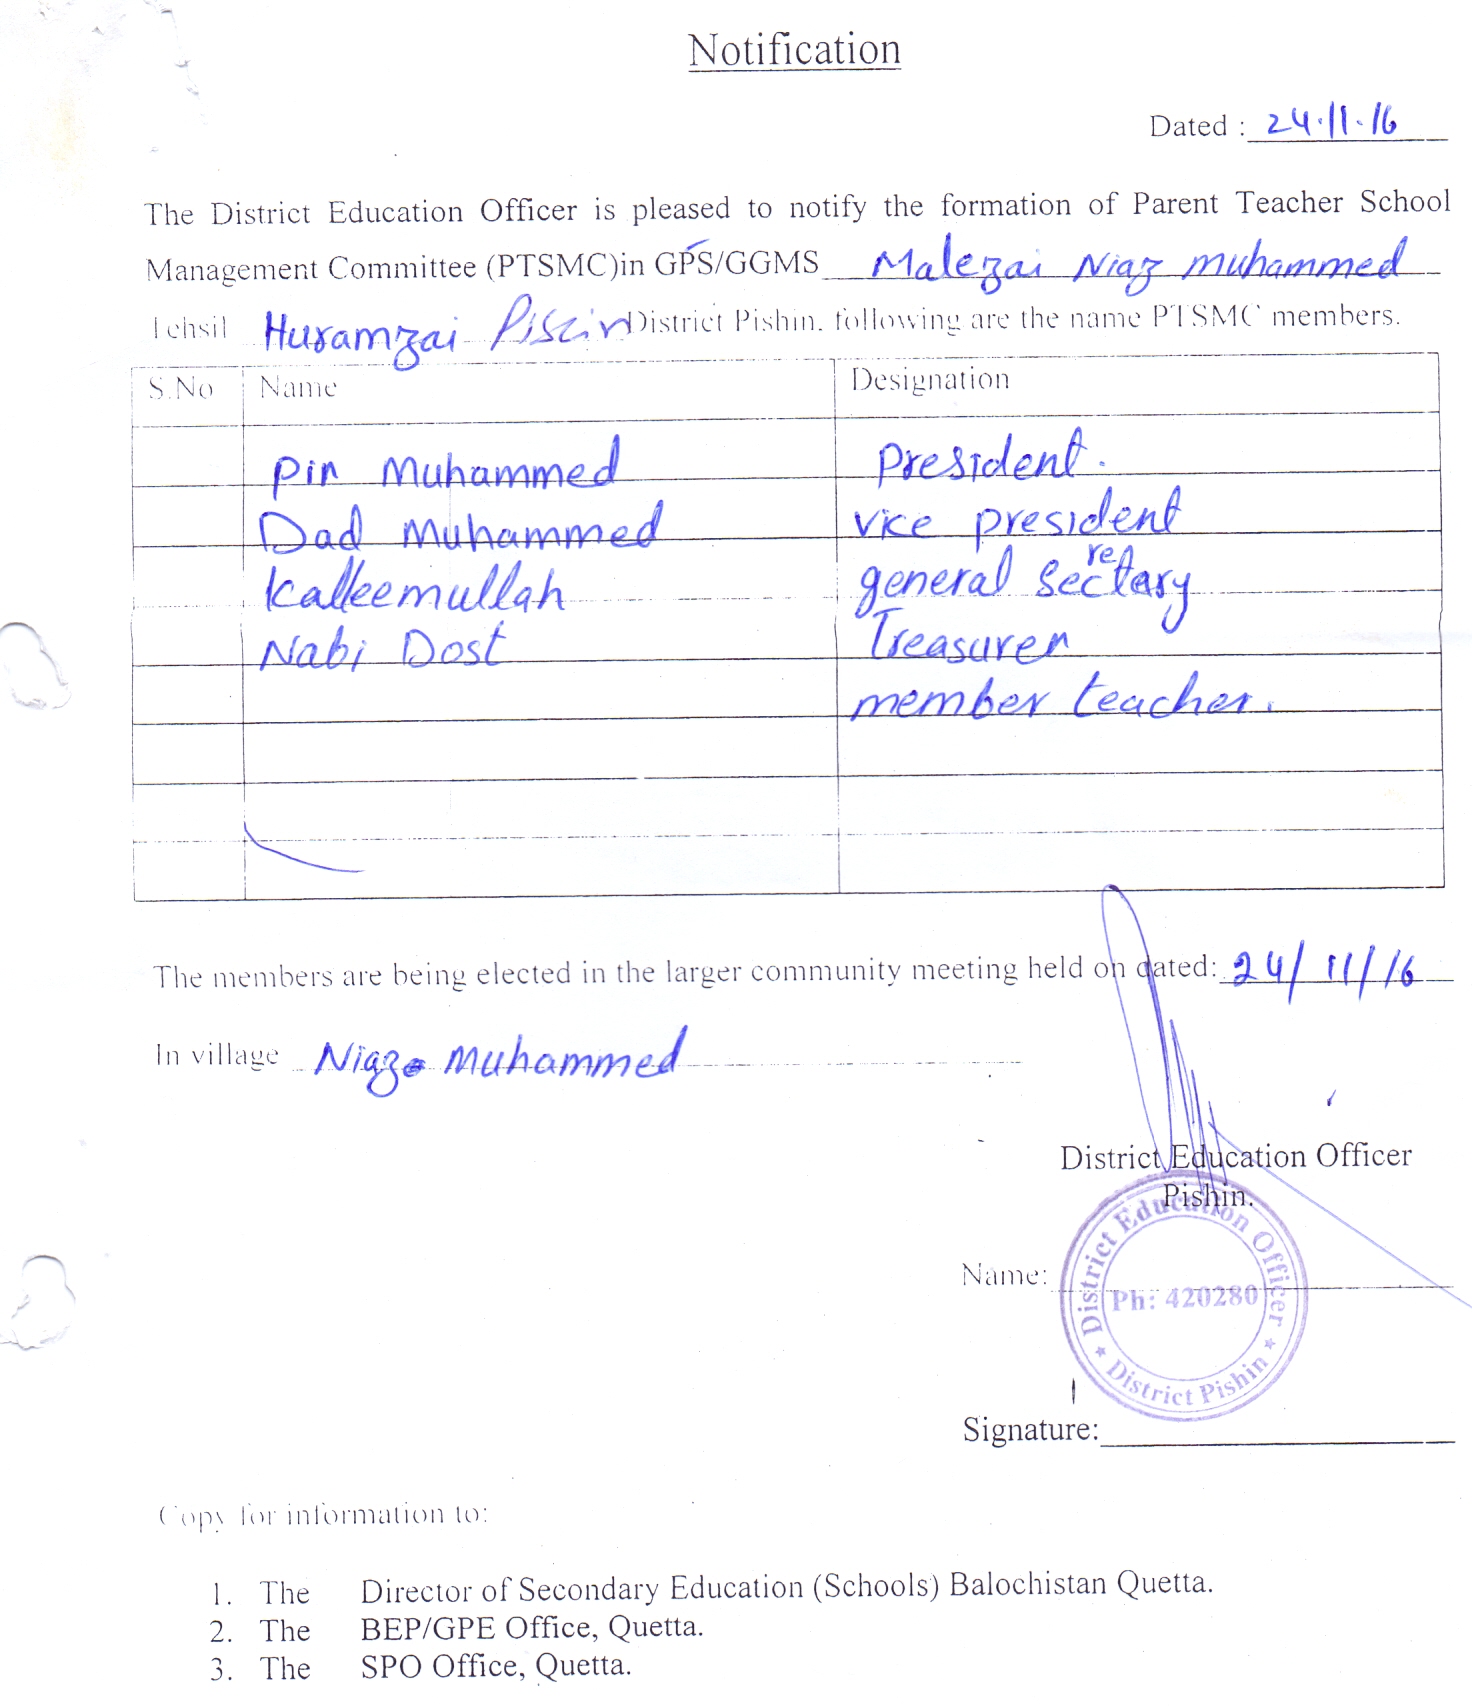 Notification
Dated : 24.11.16
The District Education Officer is pleased to notify the formation of Parent Teacher School
Management Committee (PTSMC)in GPS/GGMS Malezai Niaz Muhammed
Tehsil Huramzai Piscin District Pishin. following are the name PTSMC members.
S.No Name Designation
Pir Muhammed President.
Dad Muhammed vice president
Kalleemullah general Secretary
Nabi Dost Treasurer
member teacher.
The members are being elected in the larger community meeting held on dated: 24/11/16
In village Niaz Muhammed
District Education Officer
Pishin.
Name:
District Education Officer
Ph: 420280
★ District Pishin ★
Signature:
Copy for information to:
1. The Director of Secondary Education (Schools) Balochistan Quetta.
2. The BEP/GPE Office, Quetta.
3. The SPO Office, Quetta.